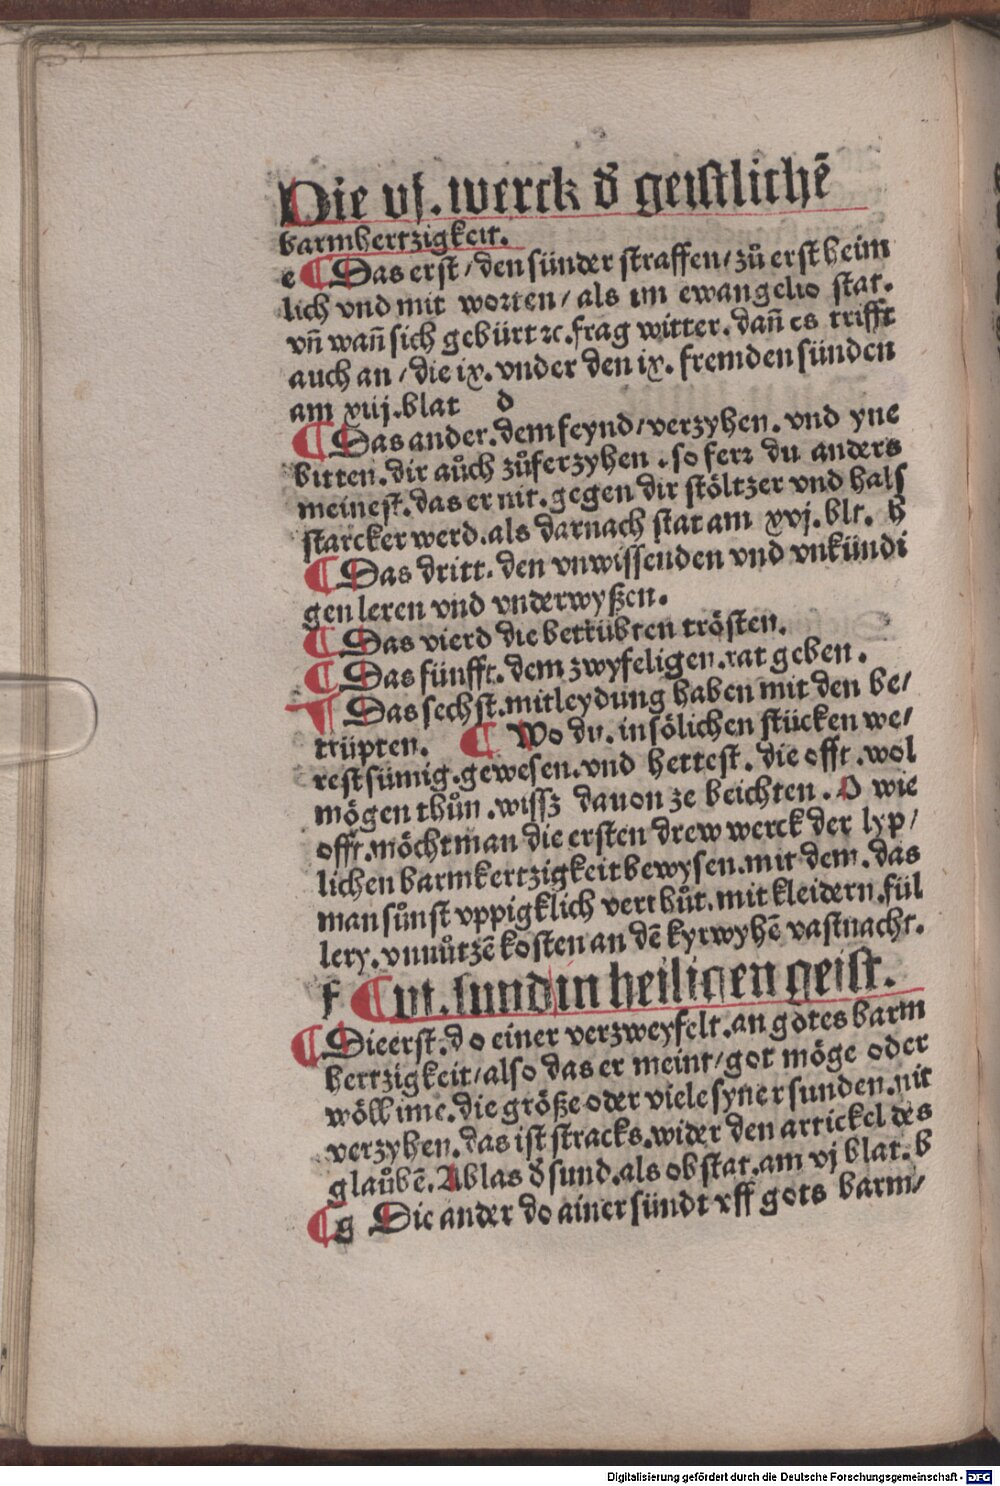 Die vj. werck d̕ geistlichē
barmhertzigkeit.
e ¶ Das erst / den sünder straffen / zů erst heim
lich vnd mit worten / als im ewangelio stat.
vñ wañ sich gebürt ⁊c. frag witter. dañ es trifft
auch an / die ix. vnder den ix. fremden sünden
am xiij. blat d
¶ Das ander. dem feynd / verzyhen. vnd yne
bitten. dir aůch zůferzyhen. so ferꝛ du anders
meinest. das er nit. gegen dir stöltzer vnd hals
starcker werd. als darnach stat am xvj. blt. h
¶ Das dritt. den vnwissenden vnd vnkündi
gen leren vnd vnderwyßen.
¶ Das vierd die betrübten trösten.
¶ Das fünfft. dem zwyfeligen. rat geben.
¶ Das sechst. mitleydung haben mit den be/
trüpten. ¶ Wo du. in sölichen stücken we/
rest sümig. gewesen. vnd hettest. die offt. wol
mögen thůn. wissz dauon ze beichten. O wie
offt. möcht man die ersten drew werck der lyp/
lichen barmkertzigkeit bewysen. mit dem. das
man sůnst vppigklich verthůt. mit kleidern. fül
lery. vnnůtzē kosten an dē kyrwyhē vastnacht.
f ¶ vi. sund in heiligen geist.
¶ Die erst. do einer verzweyfelt. an gotes barm
hertzigkeit / also das er meint / got möge oder
wöll ime. die größe oder viele syner sunden. nit
verzyhen. das ist stracks. wider den artickel des
glaůbē. Ablas d̕ sund. als ob stat. am vj blat. b
¶ g Die ander do ainer sündt vff gots barm/
Digitalisierung gefördert durch die Deutsche Forschungsgemeinschaft - DFG